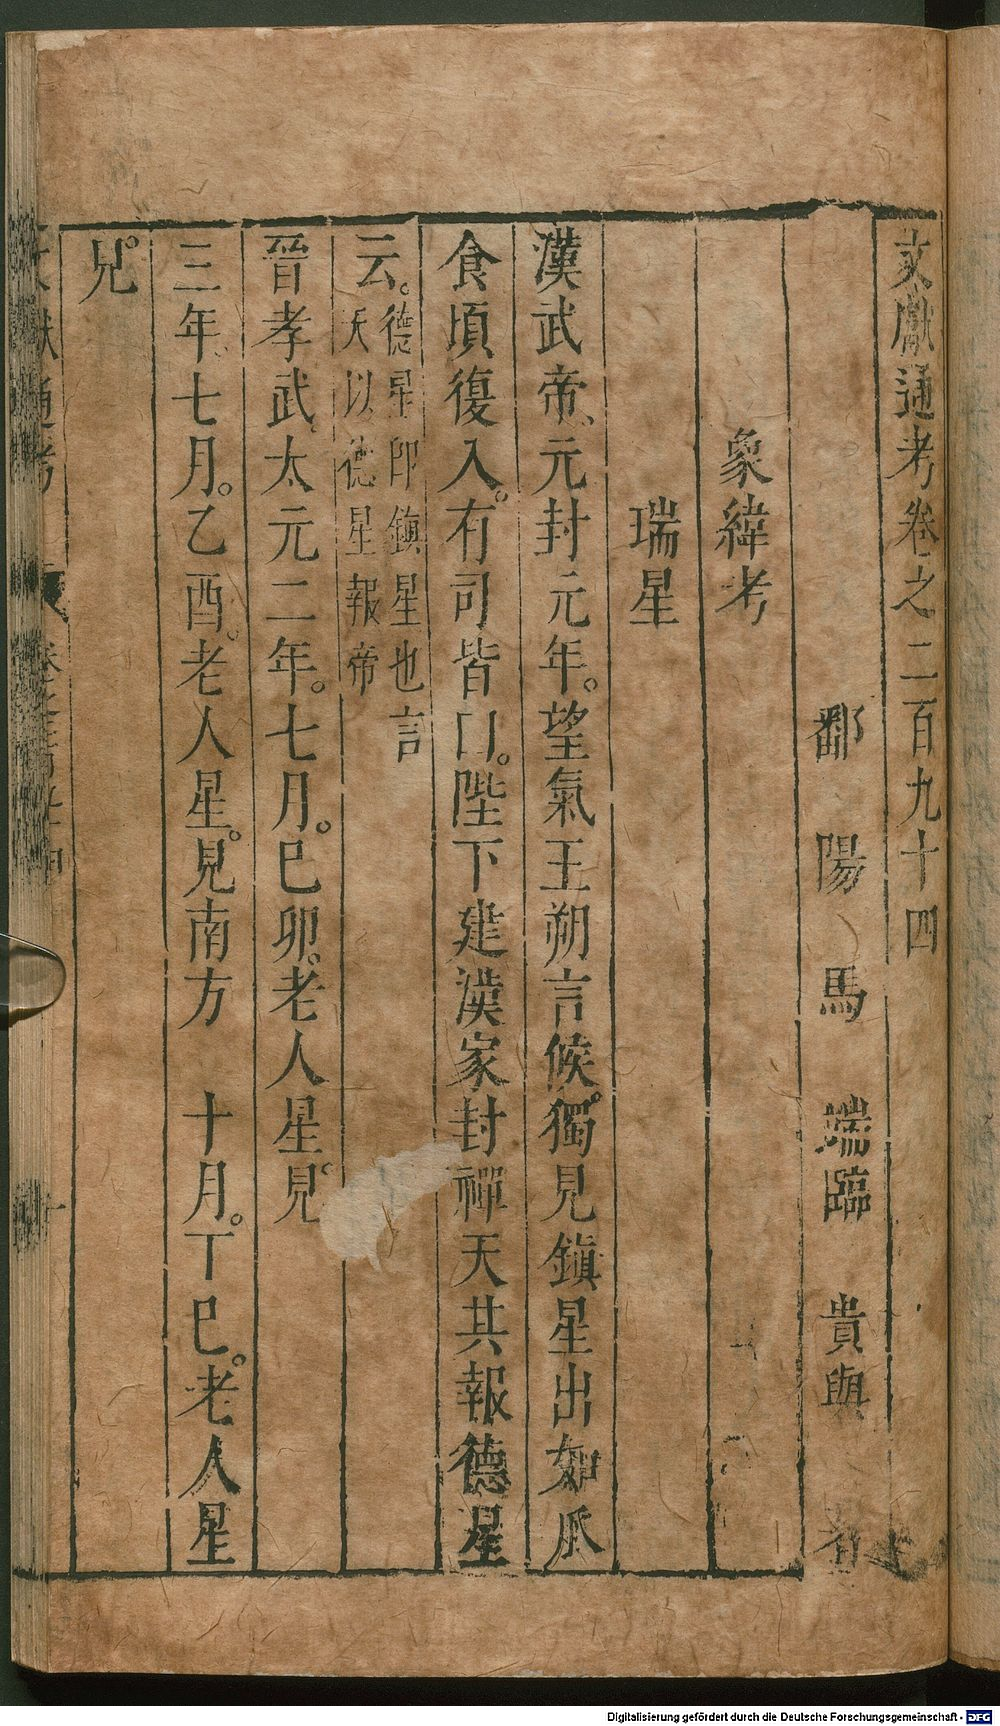 文獻通考卷之二百九十四
鄱陽馬端臨貴與著
象緯考
瑞星
漢武帝、元封元年。望氣王朔言候。獨見鎮星出如瓜
食頃復入。有司皆口。陛下建漢家封禪天共報德星
云。德星即鎮星也言
天以德星報帝
晉孝武太元二年。七月。巳卯。老人星見。
三年。七月。乙酉。老人星。見南方　十月。丁巳。老人星
見。
文獻通考
Digitalisierung gefördert durch die Deutsche Forschungsgemeinschaft - DFG